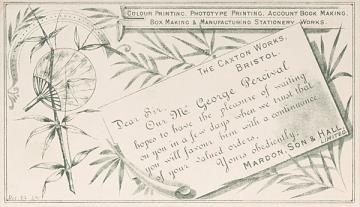 Colour Printing, Phototype Printing, Account Book Making,
Box Making & Manufacturing Stationery Works.
The Caxton Works,
Bristol.
Dear Sir,
Our Mr George Percival
hopes to have the pleasure of waiting
on you in a few days when we trust that
you will favour him with a continuance
of your valued orders.
Yours obediently,
Mardon, Son & Hall,
Limited.